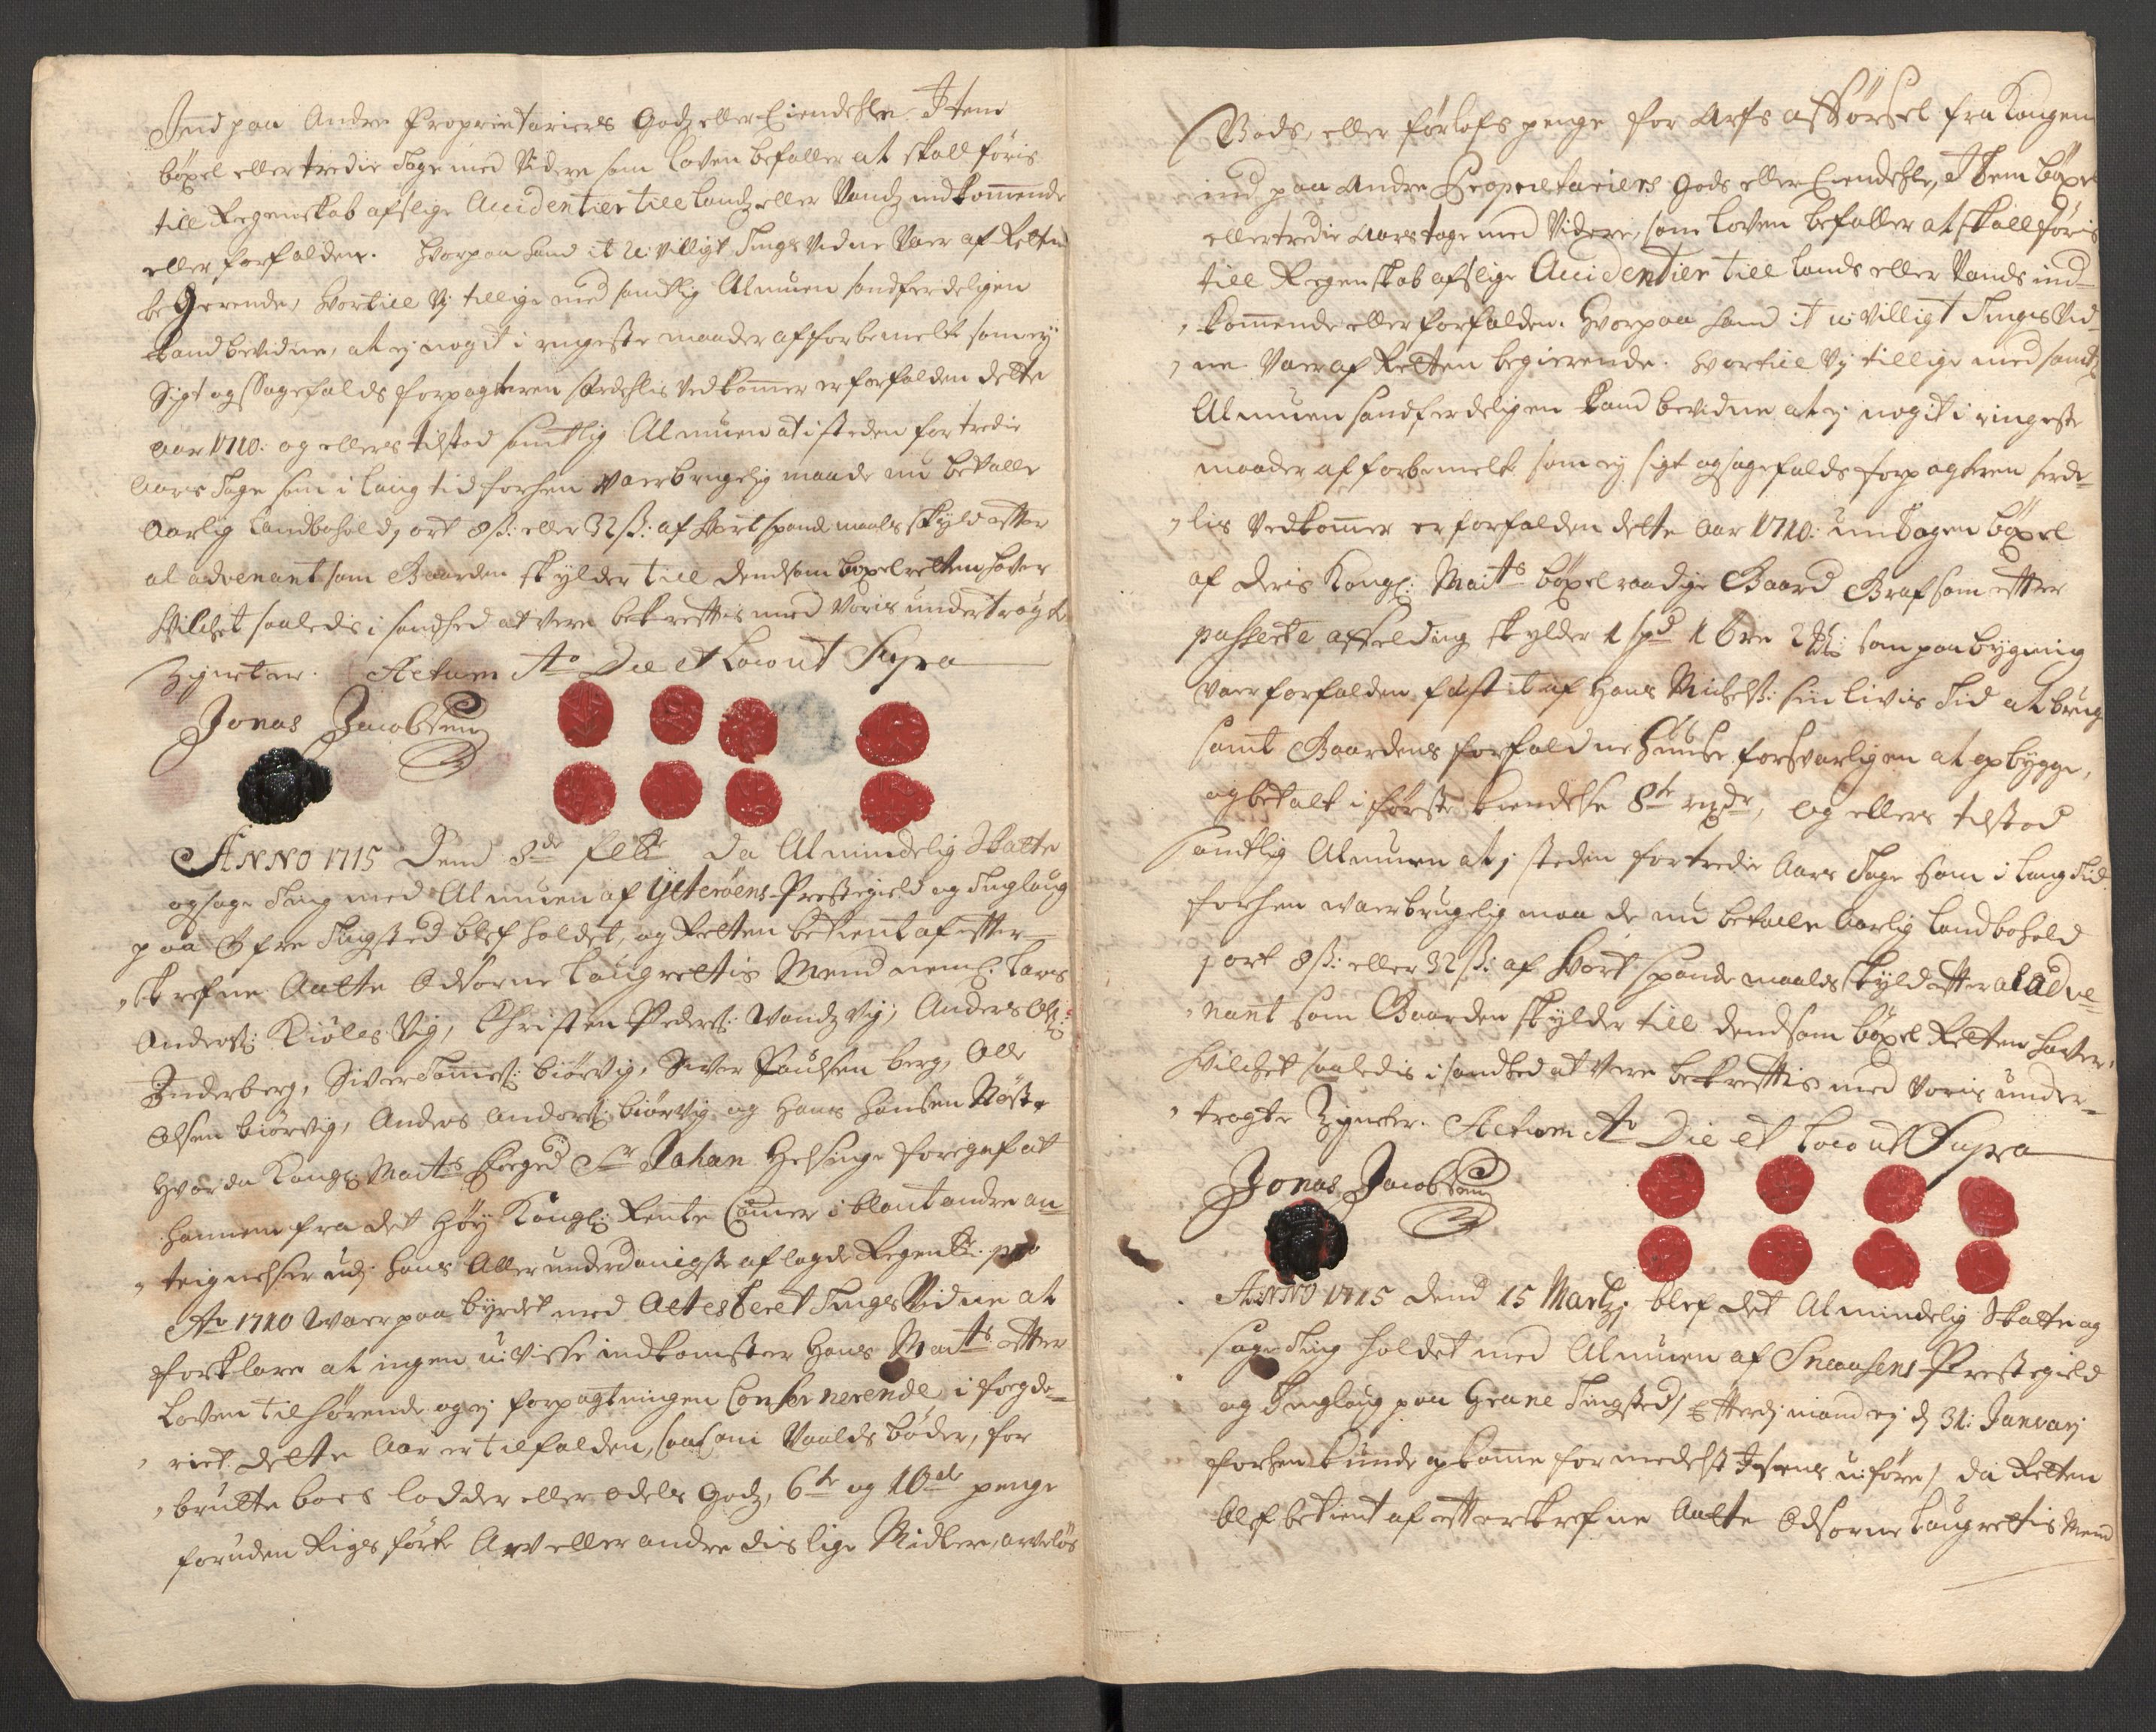 Ind paa Andre Proprietariers Godz eller Eiendehle. Item
böxel eller tredie Tage med Videre som Loven befaller at skall föris
till Regenskab af slige Accidentier till Landz eller Vandz indkom̅ende
eller forfalden. Hvorpaa hand it u-villigt Tings Vidne Vaer af Retten
begierende, Hvortill Vj tillige med samtlig Almuen sandferdeligen
kand bevidne, at ej nogit i ringeste maader af forbemelte som ey
Sigt og Sagefalds forpagteren serdehlis Vedkom̅er er forfalden dette
Aar 1710: og ellers tilstod samtlig Almuen at i steden for tredie
Aars Tage som i lang tid forhen Vaer brugelig maa de nu betalle
Aarlig Landbohold 1 ort 8 ß: eller 32 ß: af Hvert spand maals skyld efter
al advenant som Gaarden skylder till dend som böxel retten hafver
Hvilchet saaledis i sandhed at vere bekreftis med Voris undertrögte
Zigneter. Actum Ao Die et Loco ut Supra
Jonas Jacobsen
ANNO 1715 Dend 8de feb: da Almindelig Skatte
og Sage Ting med Almuen af Ytterøens Præstegield og Tinglaug
paa Ting sted blef holdet, og Retten betient af efter-
skrefne Aatte Edsorne Laugrettis Mend neml. Lars
Anders: Kiöles Vig, Christen Peders: Vandz Vig, Anders Ols:
Inderberg, Siver Tom̅es: biörvig, Siver Paulsen berg, Olle
Olsen biörvig, Anders Anders: biörvig og Hans Hansen Röste
Hvor da Kongl: Maits Foged Sr Johan Helsinge foregaf at
hannem fra det Høy Kongl: Rente Cam̅er i blant andre an-
teignelser udj hans Aller underdanigste aflagde Regensk: pro
Ao 1710 Vaer paabyrdet med Attesteret Tings Vidne at
forklare at ingen u-visse indkomster Hans Maits efter
Loven tilhörende og ej forpagtningen Consernerende, i fogde-
riet dette Aar er tilfalden, saasom Vaalds böder, for
brutte boes lodder eller odels Godz, 6te og 10de penge
foruden Rigs förte Arv eller andre dislige Midler, arvelös
Gods, eller forlofs penge for Arfs afförsel fra Kongen
ind paa Andre Proprietariers Gods eller Eiendehle, Item böxel
eller tredie Aars tage med Videre, som Loven befaller at skall föris
till Regenskab af slige Accidentier till Lands eller Vands ind-
kom̅ende eller forfalden. Hvorpaa hand it u-villigt Tings Vid-
ne Vaer af Retten begierende. Hvortill Vj tillige med samtl:
Almuen sandferdeligen kand bevidne at ej nogit i ringeste
maader af forbemelte som ey sigt og sagefalds forpagteren serde-
lis Vedkom̅er er forfalden dette Aar 1710: undtagen böxel
af deris Kongl: Maits böxelraadige Gaard Graf som efter
passerte affelding skylder 1 spd 1 öre som paa bygning
vaer forfalden, fæst it af Hans Michels: sin livis Tid at bruge
samt Gaardens forfaldne Huuse forsvarligen at opbygge,
og betalt i förste kiendelse 8te rixdr, og ellers tilstod
samtlig Almuen at j steden for tredie Aars Tage som i lang Tid
forhen vaer brugelig maa de nu betalle Aarlig Landbohold
1 ort 8 ß: eller 32 ß: af Hvert spande maals skyld efter al adve-
nant som Gaarden skylder till dend som böxel Retten hafver,
Hvilchet saaledis i sandhed at vere bekreftis med Voris under-
trögte Zigneter. Actum Ao Die et Loco ut Supra
Jonas Jacobsen
ANNO 1715 dend 15 Martzj blef det Almindelig Skatte og
Sage Ting holdet med Almuen af Snaasens Præstegield
og Tinglaug paa Grane Tingsted, Efterdj mand ej d 31: Januarj
forhen kunde opkom̅e formedelst Isens u-före, da Retten
blef betient af efterskrefne Aatte Edsorne Laugrettis Mend